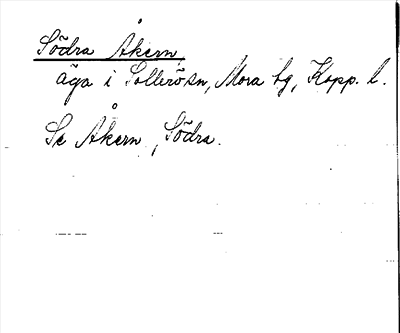 Södra Åkern,
äga i Sollerön, Mora tg, Kopp. l.
Se Åkern, Södra.